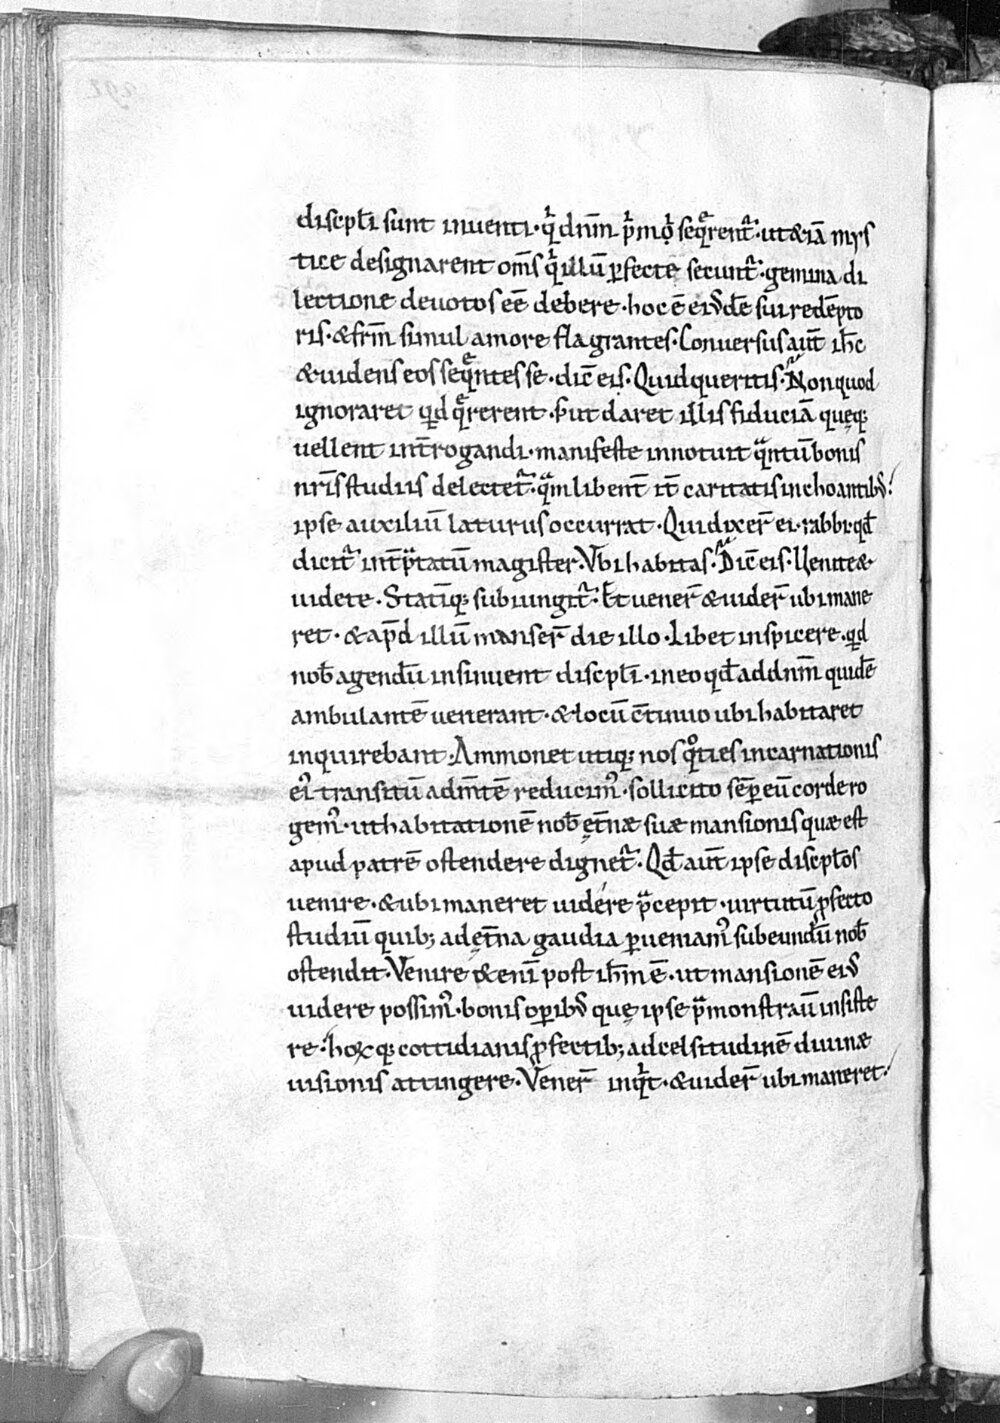 discpl̄i sunt inuenti · qͥ dnm̄ pͥmoͥ seqͣrentᷣ · ut &iā mys
tice designarent om̄s qͥ illū ꝑfecte secuntᷣ · gemina di
lectione deuotos eē debere · hoc ē eiꝰdē sui redēpto
ris · & frm̄ simul amore flagrantes · Conuersus aut̄ ih̄c
& uidens eos seqͤntes se · dic̄ eis · Quid queritis · Non quod
ignoraret qd qͤrerent · s; ut daret illis fiduciā quęq;
uellent int̄rogandi · manifeste innotuit qͣntū bonis
nr̄is studiis delectetᷣ · qͣm libent̄ it̄ caritatis inchoantibꝰ
ipse auxiliū laturus occurrat · Qui dixer̄ ei · rabbi · qđ
dicitᷣ int̄pͣtatū magister · Vbi habitas · Dic̄ eis · Uenite &
uidete · Statīq; subiungitᷣ · Et uener̄ & uider̄ ubi mane
ret · & apđ illū manser̄ die illo · Libet inspicere · qđ
nob̄ agendū insinuent discpl̄i · in eo qđ ad dnm̄ quidē
ambulantē uenerant · & locū c̄tinuo ubi habitaret
inquirebant · Ammonet utiq; nos qͦties incarnationis
eiꝰ transitū ad m̄tē reducimꝰ · sollicito sēp eū corde ro
gemꝰ · ut habitationē nob̄ ęt̄næ suæ mansionis quæ est
apud patrē ostendere dignetᷣ · Qđ aut̄ ipse discpl̄os
uenire · & ubi maneret uidére pͣcepit · uirtutū ꝓfecto
studiū quib; ad ęt̄na gaudia ꝑueniamꝰ subeundū nob̄
ostendit · Venire &enī post ih̄m ē · ut mansionē eiꝰ
uidere possimꝰ · bonis oꝑibꝰ quę ipse pͣmonstrauꝰ insiste
re · hoꝝq; cottidianis ꝓfectib; ad celsitudinē diuinæ
uisionis attingere · Vener̄ inqͥt · & uider̄ ubi maneret ·